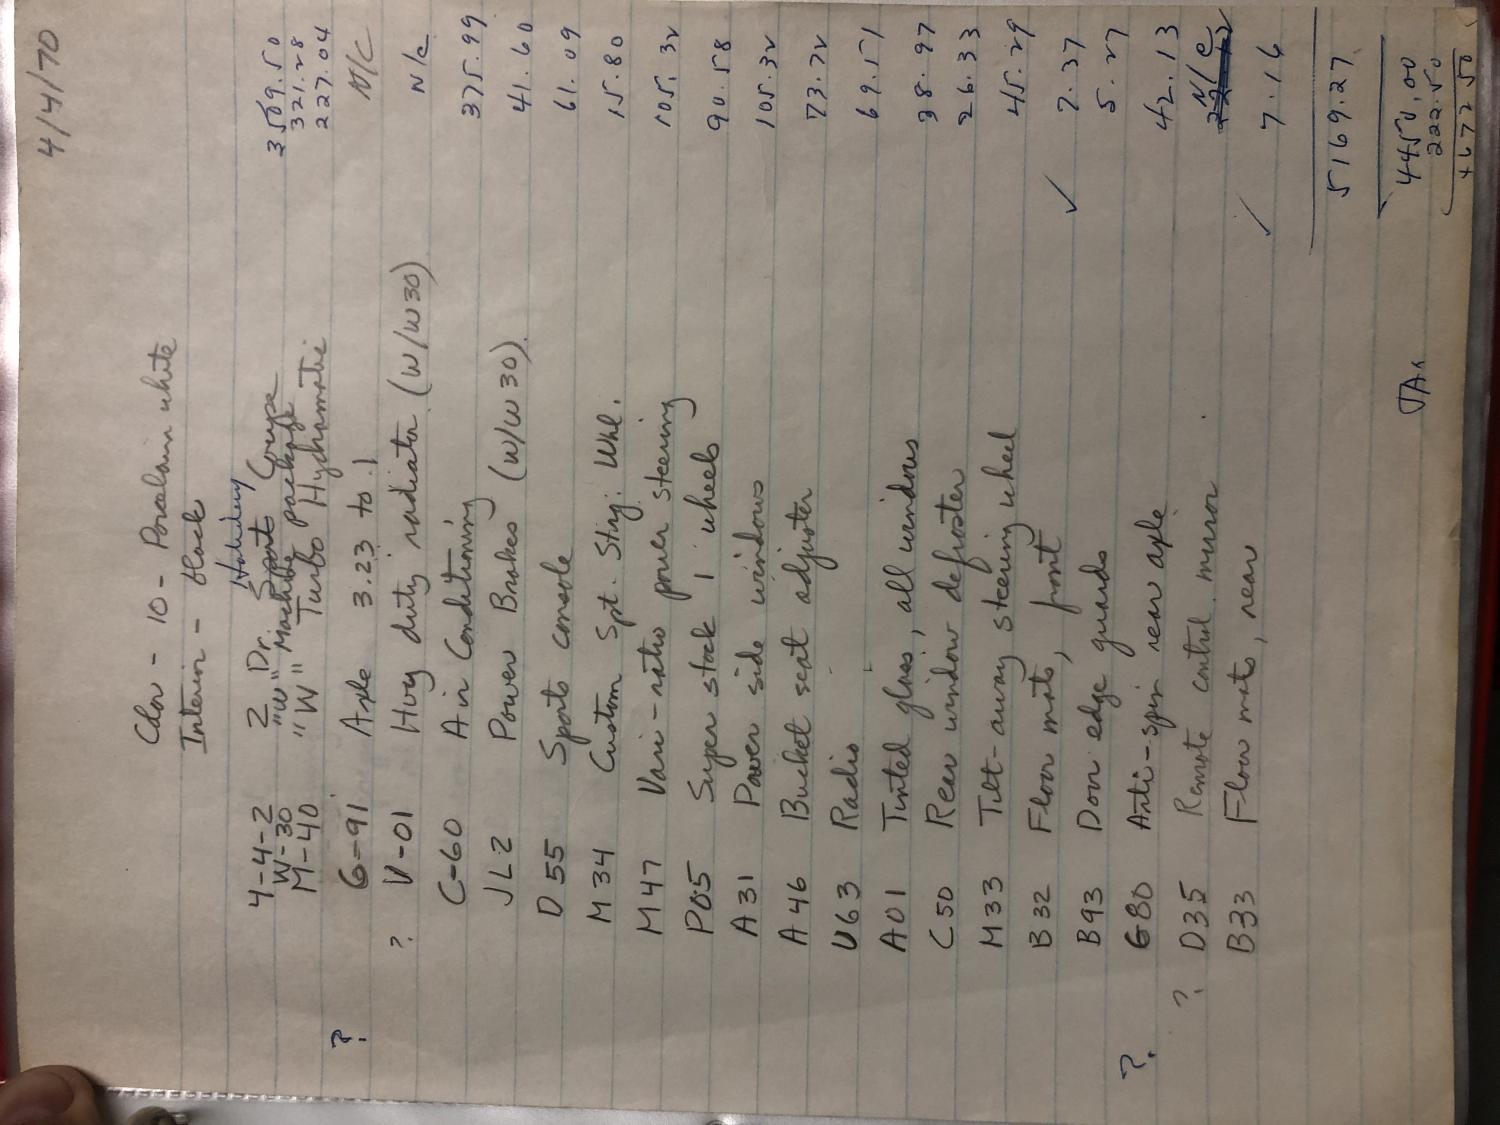 4/4/70
Color - 10 - Porcelain white
Interior - Black
Holiday
4-4-2 2 Dr. Sports Coupe 3509.50
W-30 "W" Machine package 321.28
M-40 "W" Turbo Hydramatic 227.04
? G-91 Axle 3.23 to .1 N/C
? V-01 Hvy duty radiator (W/W30) N/C
C-60 Air Conditioning 375.99
JL2 Power Brakes (W/W30) 41.60
D55 Sports console 61.09
M34 Custom Spt. Strg. Whl. 15.80
M47 Vari-ratio power steering 105.32
P05 Super stock I wheels 90.58
A31 Power side windows 105.32
A46 Bucket seat adjuster 73.72
U63 Radio 69.51
A01 Tinted glass, all windows 38.97
C50 Rear window defroster 26.33
M33 Tilt-away steering wheel 45.29
B32 Floor mats, front ✓ 7.37
B93 Door edge guards 5.27
? G80 Anti-spin rear axle 42.13
? D35 Remote control mirror N/C
B33 Floor mats, rear ✓ 7.16
5169.27
4450.00
TAX 222.50
4672.50